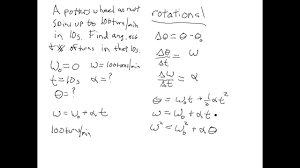 A potters wheel as rest
spins up to 100turns/min
in 10s. Find ang. acc
# of turns in that 10s.
ω₀ = 0 ω = 100turns/min
t = 10s α = ?
θ = ?
ω = ω₀ + αt
100turns/min
rotational
Δθ = θ - θ₀
Δθ/Δt = ω
Δω/Δt = α
θ = ω₀t + ½αt²
ω = ω₀ + αt
ω² = ω₀² + αθ